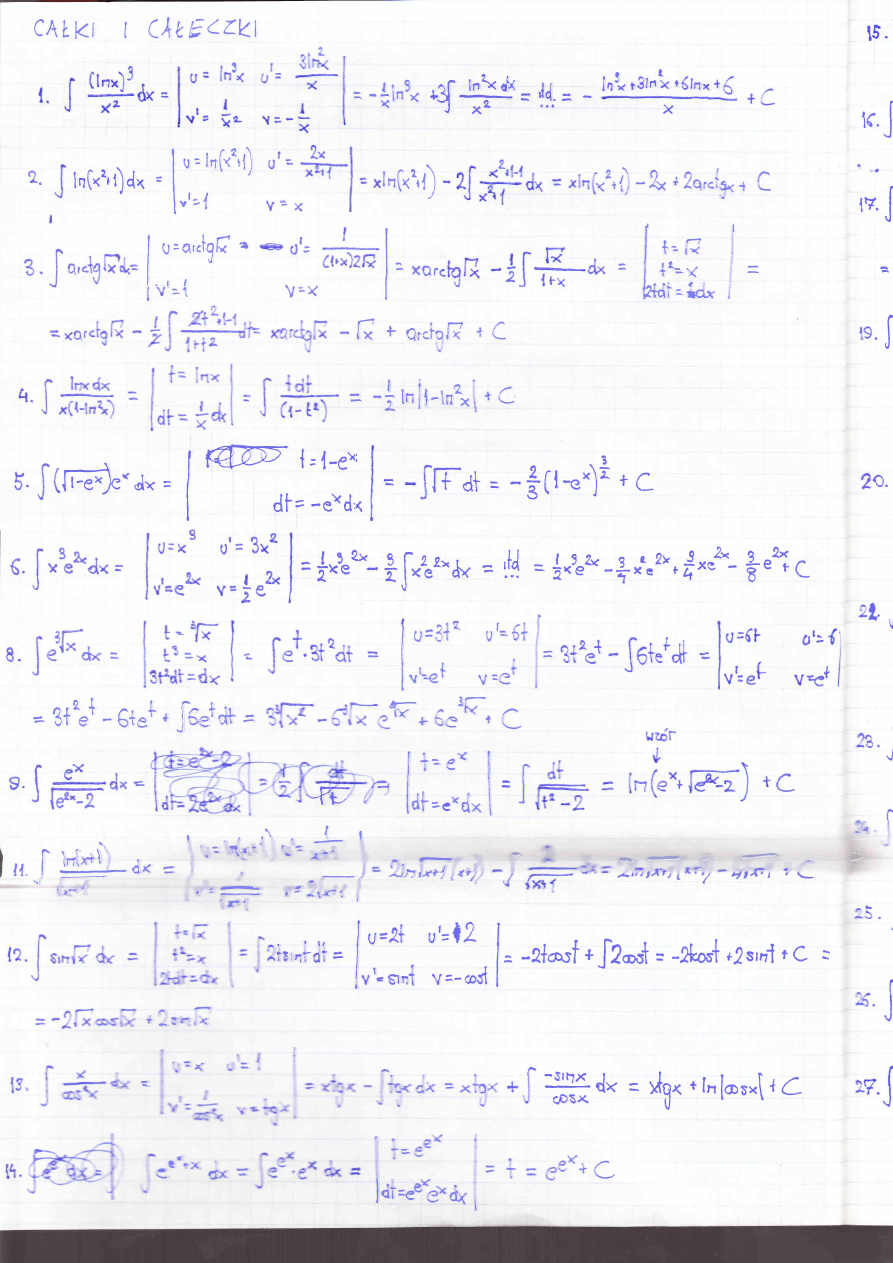 CAŁKI I CAŁECZKI
1. ∫ (lnx)³/x² dx = | u = ln³x u' = 3ln²x/x ; v' = 1/x² v = -1/x | = -1/x ln³x + 3∫ ln²x dx/x² = itd. ... = - (ln³x+3ln²x+6lnx+6)/x + C
2. ∫ ln(x²+1)dx = | u = ln(x²+1) u' = 2x/(x²+1) ; v'=1 v = x | = xln(x²+1) - 2∫ (x²+1-1)/(x²+1) dx = xln(x²+1) - 2x + 2arctgx + C
3. ∫ arctg√x dx = | u = arctg√x u' = 1/((1+x)2√x) ; v'=1 v=x | = xarctg√x - 1/2 ∫ √x/(1+x) dx = | t=√x ; t²=x ; 2tdt = dx | =
= xarctg√x - 1/2 ∫ (2t²+1-1)/(1+t²) dt = xarctg√x - √x + arctg√x + C
4. ∫ lnx dx/(x(1-ln²x)) = | t = lnx ; dt = 1/x dx | = ∫ tdt/(1-t²) = -1/2 ln|1-ln²x| + C
5. ∫ (√(1-eˣ))eˣ dx = | t=1-eˣ ; dt=-eˣdx | = -∫√t dt = -2/3 (1-eˣ)^(3/2) + C
6. ∫ x³e^(2x) dx = | u=x³ u'=3x² ; v'=e^(2x) v=1/2 e^(2x) | = 1/2 x³e^(2x) - 3/2 ∫x²e^(2x)dx = itd ... = 1/2 x³e^(2x) - 3/4 x²e^(2x) + 3/4 xe^(2x) - 3/8 e^(2x) + C
8. ∫ e^(³√x) dx = | t=³√x ; t³=x ; 3t²dt=dx | = ∫ eᵗ·3t²dt = | u=3t² u'=6t ; v'=eᵗ v=eᵗ | = 3t²eᵗ - ∫6teᵗdt = | u=6t u'=6 ; v'=eᵗ v=eᵗ |
= 3t²eᵗ - 6teᵗ + ∫6eᵗdt = 3³√x² - 6³√x e^(³√x) + 6e^(³√x) + C
wzór
↓
9. ∫ eˣ/√(e^(2x)-2) dx = | t=eˣ ; dt=eˣdx | = ∫ dt/√(t²-2) = ln(eˣ+√(e^(2x)-2)) + C
11. ∫ ln(x+1)/√(x+1) dx = | u=ln(x+1) u'=1/(x+1) ; v'=1/√(x+1) v=2√(x+1) | = 2ln√(x+1) (x+1) - ∫ 2/√(x+1) dx =
12. ∫ sin√x dx = | t=√x ; t²=x ; 2tdt=dx | = ∫2tsint dt = | u=2t u'=2 ; v'=sint v=-cost | = -2tcost + ∫2cost = -2tcost + 2sint + C =
= -2√x cos√x + 2sin√x
13. ∫ x/cos²x dx = | u=x u'=1 ; v'=1/cos²x v=tgx | = xtgx - ∫tgx dx = xtgx + ∫ -sinx/cosx dx = xtgx + ln|cosx| + C
14. ∫ e^(eˣ+x) dx = ∫ e^(eˣ)·eˣ dx = | t=e^(eˣ) ; dt=e^(eˣ)eˣdx | = t = e^(eˣ) + C
15.
16. ∫
17. ∫
=
19. ∫
20.
22.
23.
24. ∫
25.
26. ∫
27. ∫